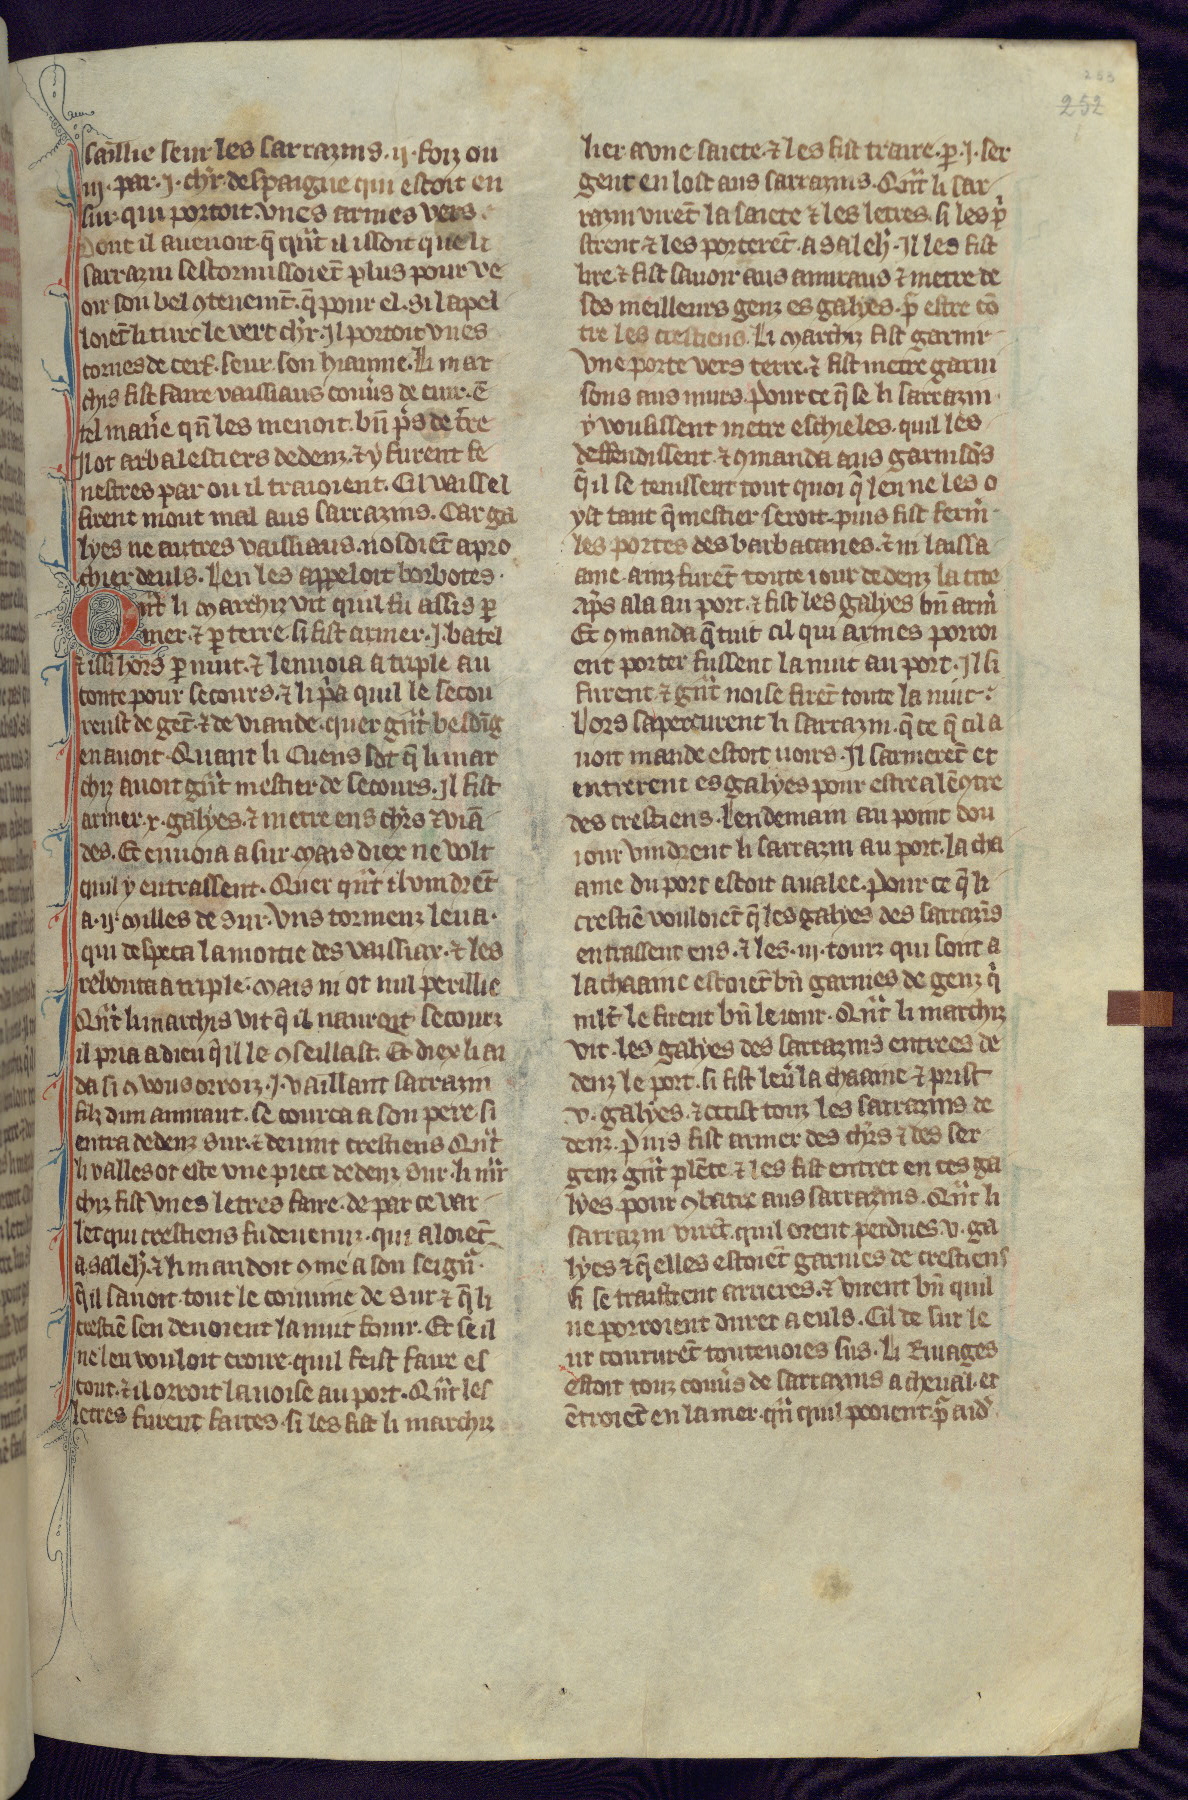 253
252
saillie seur les sarrazins. ij. foiz ou
iij. par. j. chr̃. despaigne qui estoit en
sur. qui portoit. vnes armes vers.
Dont il auenoit. q̃ qñt il issoit que li
sarrazin sestormissoiẽt plus pour ve
oir son bel 9tenemt̃. q̃ pour el. Si lapel
loiẽt li turc le vert chr̃. Jl portoit vnes
cornes de cerf. seur. son hiaume. Li mar
chis fist faire vaissiaus couũs de cuir. ẽ
tel mañe qñ les menoit. bñ p̃s de tr̃e
Jl ot arbalestiers dedenz. ⁊ y furent fe
nestres par ou il traioient. Cil vaissel
firent mout mal aus sarrazins. Car ga
lyes ne autres vaissiaus. nosoiẽt apro
chier deuls. Len les appeloit borbotes.
Qñt li marchiz vit quil fu assis p̱
mer. ⁊ p̱ terre. si fist armer. j. batel
⁊ issi hors p̱ nuit. ⁊ lenuoia a triple au
conte pour secours. ⁊ li p̃a quil le secou
reust de gẽt. ⁊ de viande. quer gñt besoĩg
en auoit. Quant li Cuens sot q̃ li mar
chiz auoit gñt mestier de secours. Jl fist
armer. x. galyes. ⁊ metre ens chr̃s ⁊ viã
des. Et enuoia a sur. Mais diex ne volt
quil y entrassent. Quer qñt il vindrẽt
a. ij. milles de sur. Vns tormenz leua.
qui despeca la moitie des vaissiax. ⁊ les
rebouta a triple. Mais ni ot nul perillie
Qñt li marchis vit q̃ il nauroit secourz
il pria a dieu q̃ il le 9seillast. Et diex li ai
da si 9 vous orroiz. J. vaillant sarrazin
filz dun amiraut. se courca a son pere. si
entra dedenz sur. ⁊ deuint crestiens Qñt
li valles ot este vne piece dedenz sur. li mr̃
chiz fist vnes letres faire. de par ce var
let qui crestiens fu deuenuz. qui aloiẽt
a saleh̃. ⁊ li mandoit 9me a son seigñ.
q̃ il sauoit tout le couuine de sur ⁊ q̃ li
crestiẽ sen deuoient la nuit fouir. Et se il
ne len vouloit croire. quil feist faire es
cout. ⁊ il orroit la noise au port. Qñt les
letres furent faites. si les fist li marchiz
lier a vne saiete. ⁊ les fist traire. p̱. j. ser
gent en lost aus sarrazins. Qñt li sar
razin virẽt la saiete ⁊ les letres. si les p̃
strent ⁊ les porterẽt. a saleh̃. Jl les fist
lire. ⁊ fist sauoir aus amiraus ⁊ metre de
ses meilleurs genz es galyes. p̃ estre cõ
tre les crestiens. Li marchiz fist garnir
vne porte vers terre. ⁊ fist metre garni
sons aus murs. pour ce q̃ se li sarrazin
y vousissent metre eschieles. quil les
deffendissent. ⁊ 9manda aus garnisõs
q̃ il se tenissent tout quoi q̃ len ne les o
yst tant q̃ mestier seroit. puis fist ferm̃
les portes des barbacanes. ⁊ ni laissa
ame. ainz furẽt toute iour dedenz la cite
Ap̃s ala au port. ⁊ fist les galyes bñ arm̃
Et 9manda q̃ tuit cil qui armes porroi
ent porter fussent la nuit au port. Jl si
furent. ⁊ gñt noise firẽt toute la nuit.
Lors sapercurent li sarrazin. q̃ ce q̃ cil a
uoit mande estoit uoirs. Jl sarmerẽt et
entrerent es galyes pour estre a lẽ9tre
des crestiens. Lendemain au point dou
iour vindrent li sarrazin au port. la cha
aine du port estoit aualee. Pour ce q̃ li
crestiẽ vouloiẽt q̃ les galyes des sarrazĩs
entrassent ens. ⁊ les. iij. tourz qui sont a
la chaaine estoiẽt bñ garnies de genz q̃
mlt̃ le firent bñ le iour. Qñt li marchiz
vit. les galyes des sarrazins entrees de
denz le port. si fist leũ la chaaine ⁊ prist
v. galyes. ⁊ occist touz les sarrazins de
denz. Puis fist armer des chr̃s ⁊ des ser
genz gñt plẽte. ⁊ les fist entrer en ces ga
lyes. pour 9batre aus sarrazins. Qñt li
sarrazin virẽt. quil orent perdues. v. ga
lyes ⁊ q̃ elles estoiẽt garnies de crestiens
si se traistrent arrieres. ⁊ virent bñ quil
ne porroient durer a euls. Cil de sur le
ur coururẽt toutenoies sus. Li Riuages
estoit touz couũs de sarrazins a cheual. et
ẽtroiẽt en la mer. qñ quil pooient. p̃ aid̃